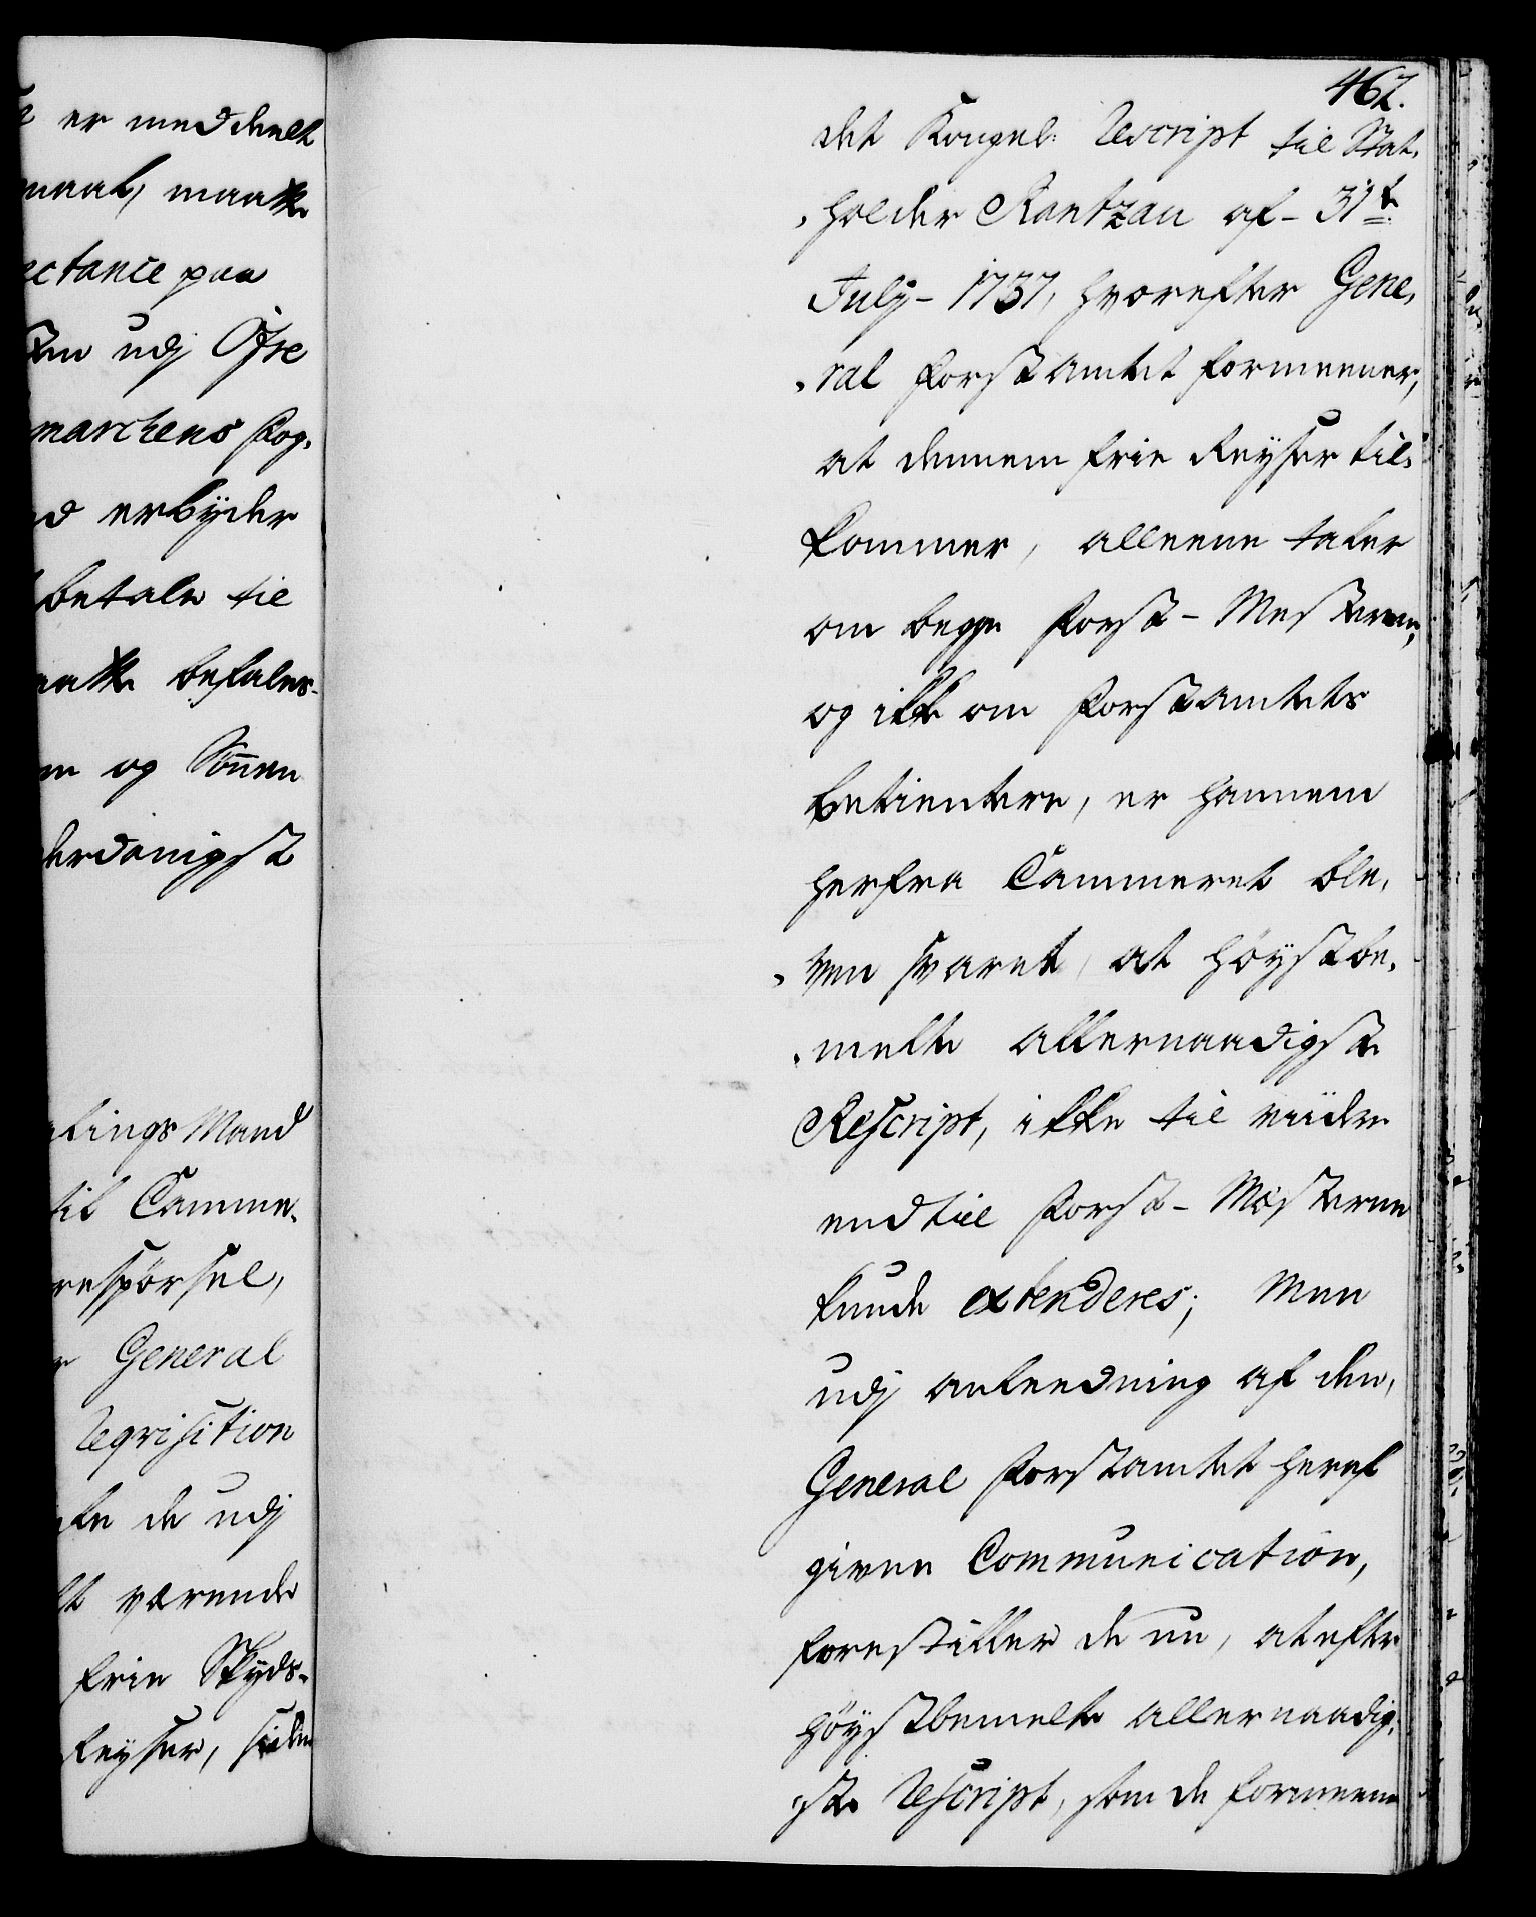 er meddeelt
maal, maatte
ctance paa
udj Öfre
marckens Fog,
erbyder
betale til
befales
og Sönnen
derdanigst
tings Mand
til Camme,
respörsel,
General
Reqvisition
de udj
værende
frie Skyds-
Reyser, siden
462.
det Kongel: Rescript til Stat,
,holder Rantzau af 31te
July 1737, hvorefter Gene,
,ral Forstamtet formeener,
at dennem frie Reyser til,
kommer, alleene taler
om begge Forst-Mesterne,
og ikke om Forstamtets
betientere, er hannem
herfra Cammeret ble,
,ven svaret, at höystbe,
,melte allernaadigste
Rescript, ikke til viidere
end til Forst-Mesterne
kunde extenderes; Men
udj anleedning af den,
General Forstamtet heraf
givne Communication,
forestiller de nu, at efter
höystbemelte allernaadig,
,ste Rescript, som de formeene